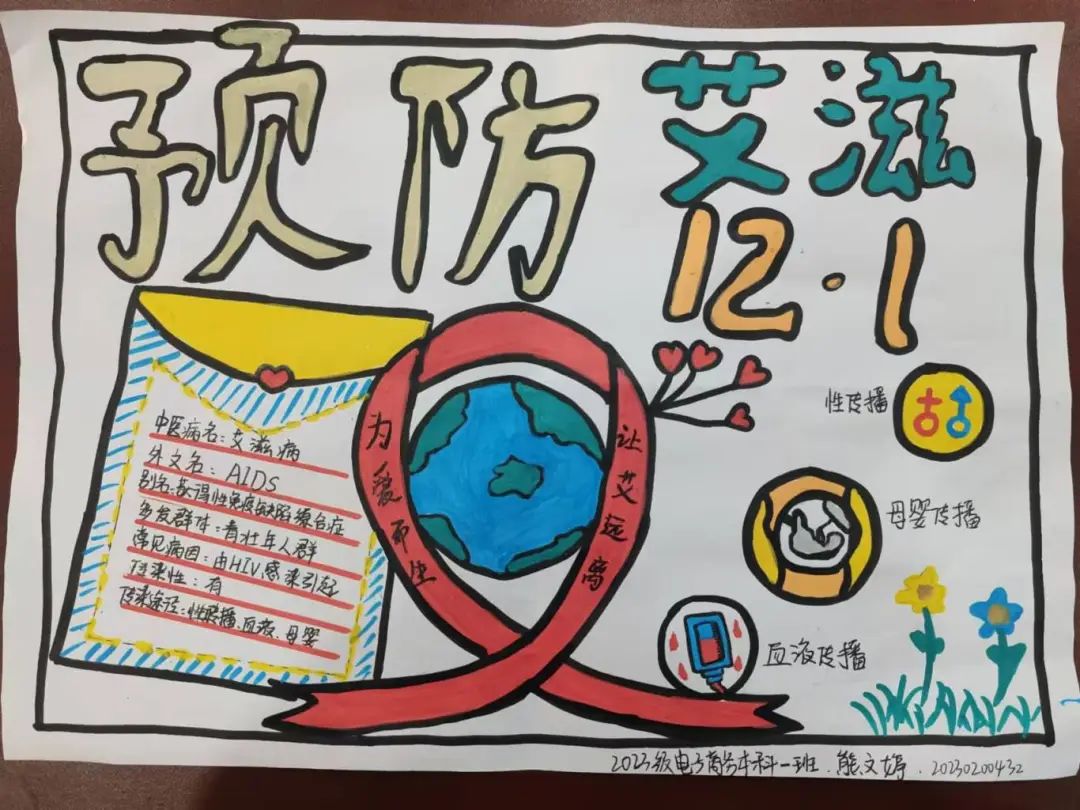 预防艾滋
12·1
中医病名:艾滋病
外文名:AIDS
别名:获得性免疫缺陷综合症
多发群体:青壮年人群
常见病因:由HIV感染引起
传染性:有
传染途径:性传播、血液、母婴
为爱而生
让艾远离
性传播
母婴传播
血液传播
2023级电子商务本科一班.熊文婷.20230200432